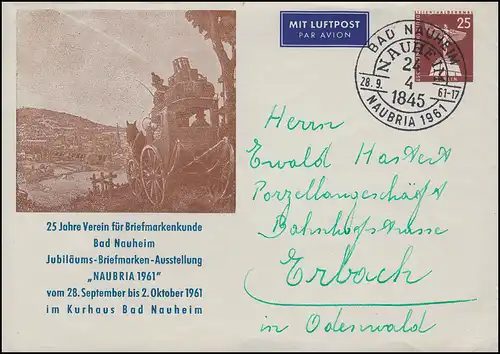 MIT LUFTPOST
PAR AVION
25
BAD NAUHEIM
NAUHEIM
24
4
1845
28.9.
61-17
NAUBRIA 1961
25 Jahre Verein für Briefmarkenkunde
Bad Nauheim
Jubiläums-Briefmarken-Ausstellung
„NAUBRIA 1961"
vom 28. September bis 2. Oktober 1961
im Kurhaus Bad Nauheim
Herrn
Ewald Hastert
Porzellangeschäft
Bahnhofstrasse
Erbach
in Odenwald